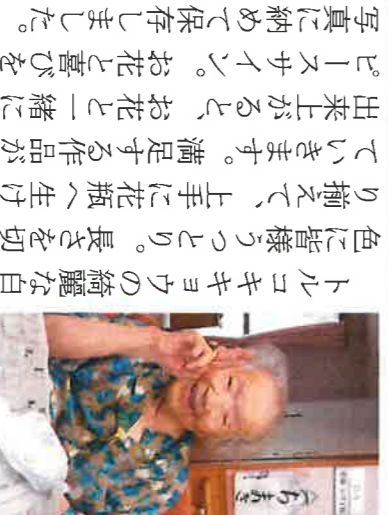 トルコキキョウの綺麗な白
色に皆様うっとり。長さを切
り揃えて、上手に花瓶へ生け
ていきます。満足する作品が
出来上がると、お花と一緒に
ピースサイン。お花と喜びを
写真に納めて保存しました。